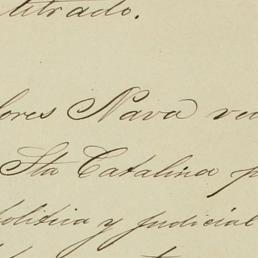 titrado.
lores Nava ve
Sta Catalina p
política y judicial